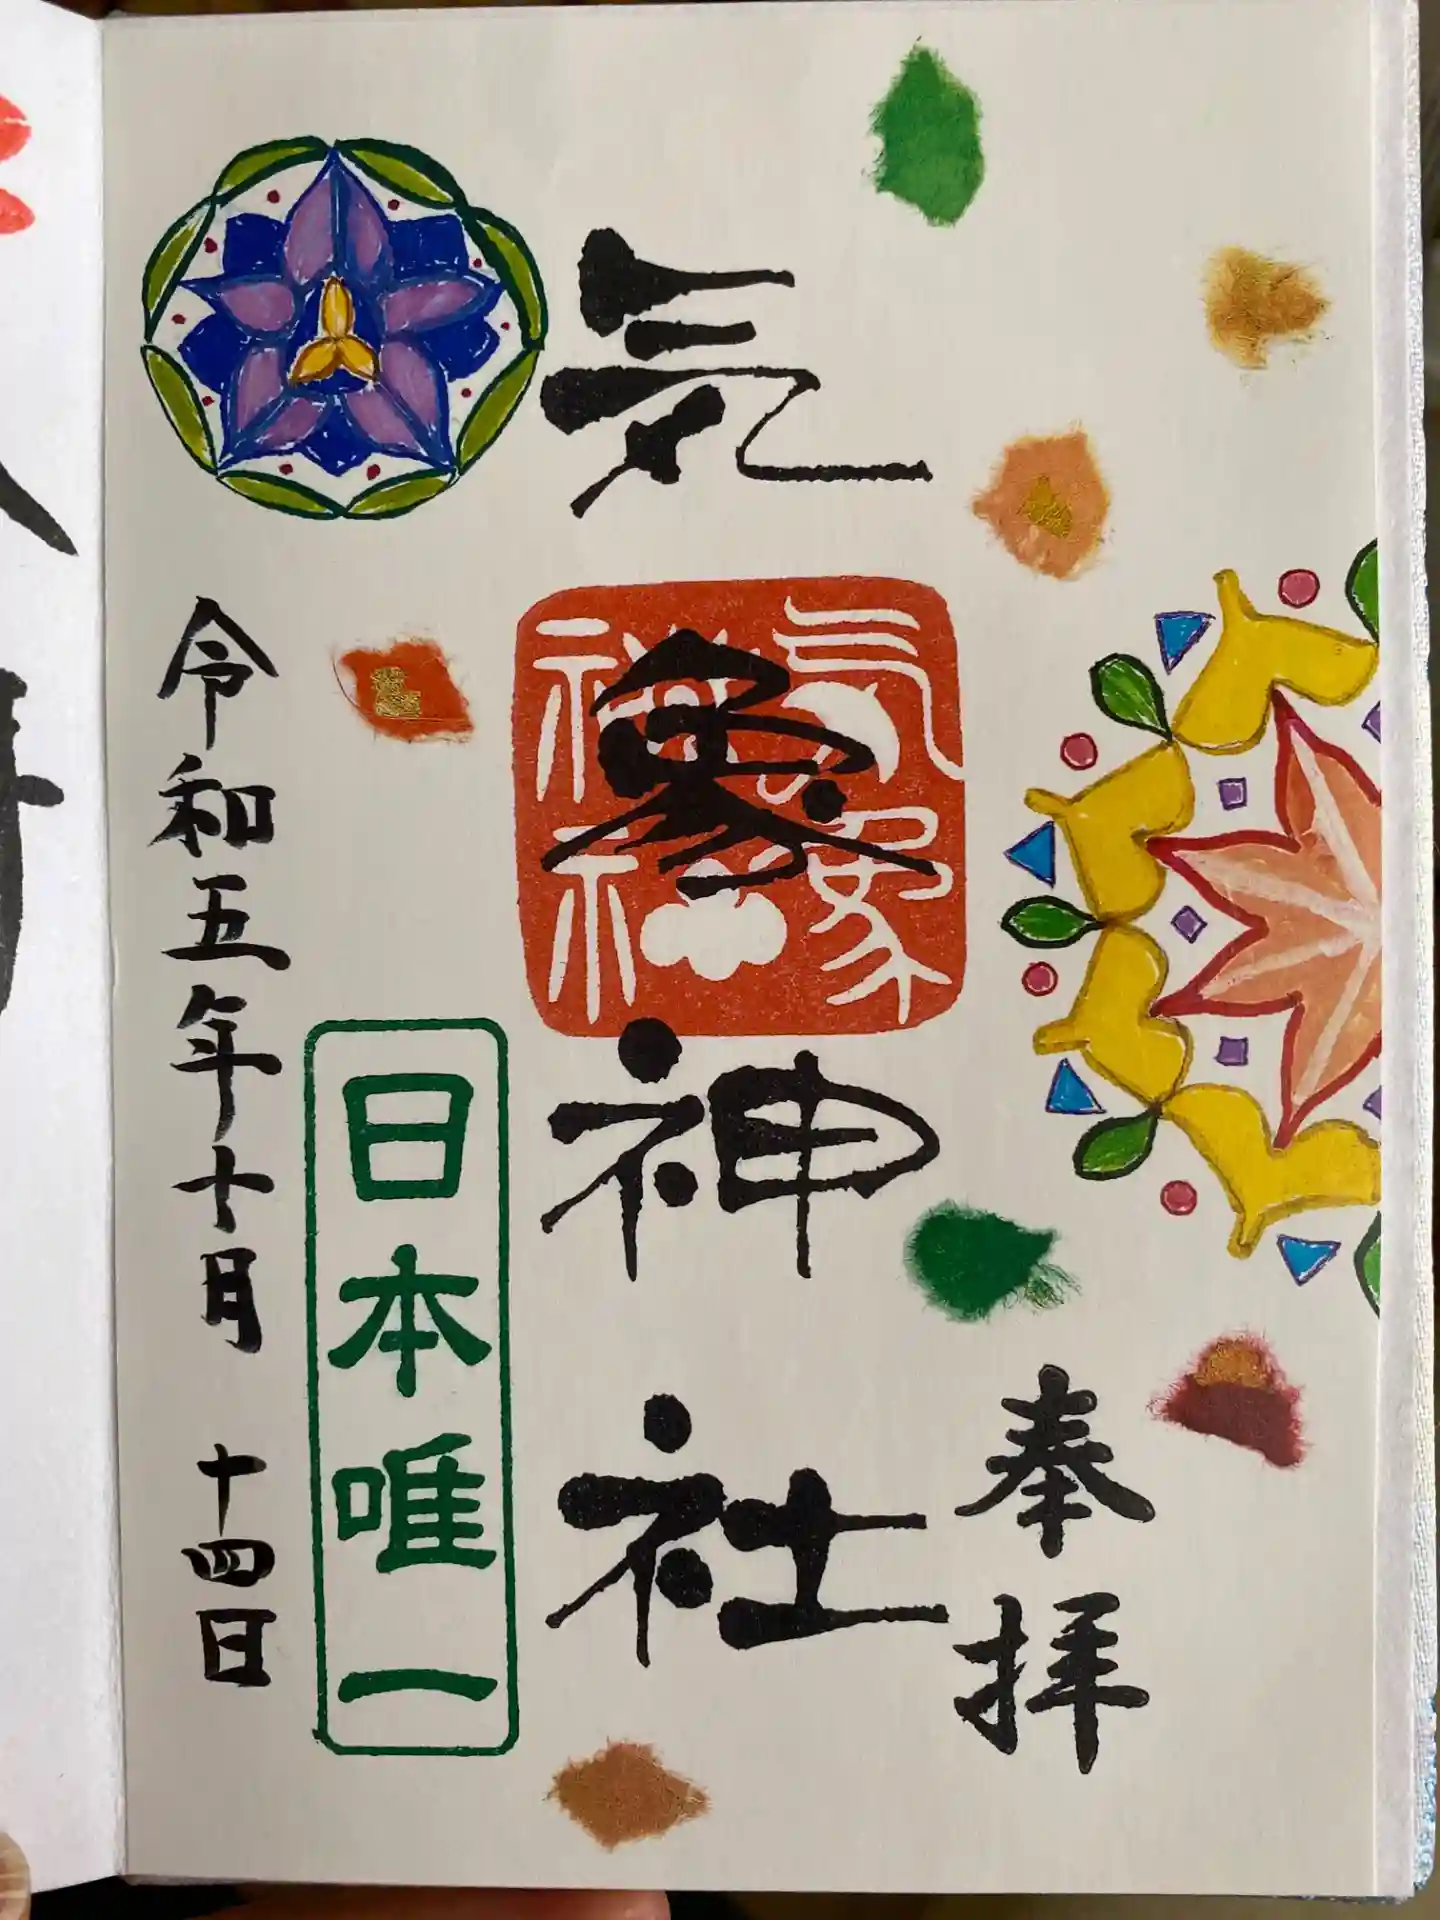 奉拝
気象神社
気象神社
日本唯一
令和五年十月十四日